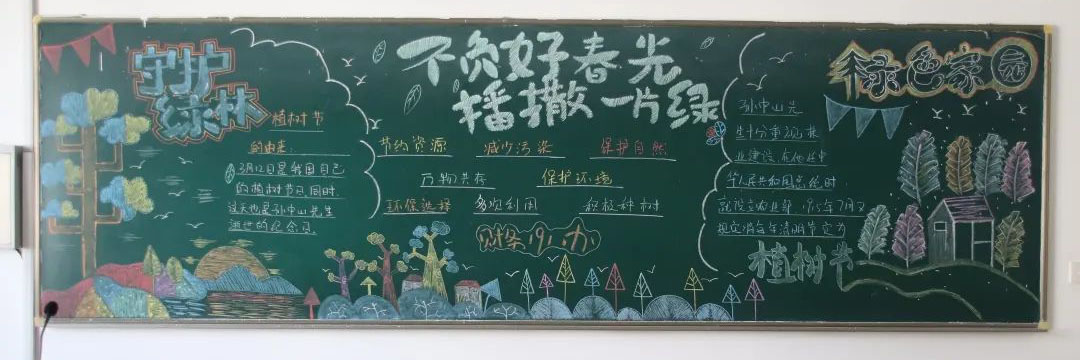 守护
绿林
植树节
的由来:
3月12日是我国自己
的植树节日,同时,
这天也是孙中山先生
逝世的纪念日。
不负好春光
播撒一片绿
节约资源 减少污染 保护自然
万物共存 保护环境
环保选择 多次利用 积极种树
财务191.办
绿色家园
孙中山先
生十分重视林
业建设,在他任中
华人民共和国总统时
就设立农业部,1915年7月又
规定将每年清明节定为
植树节